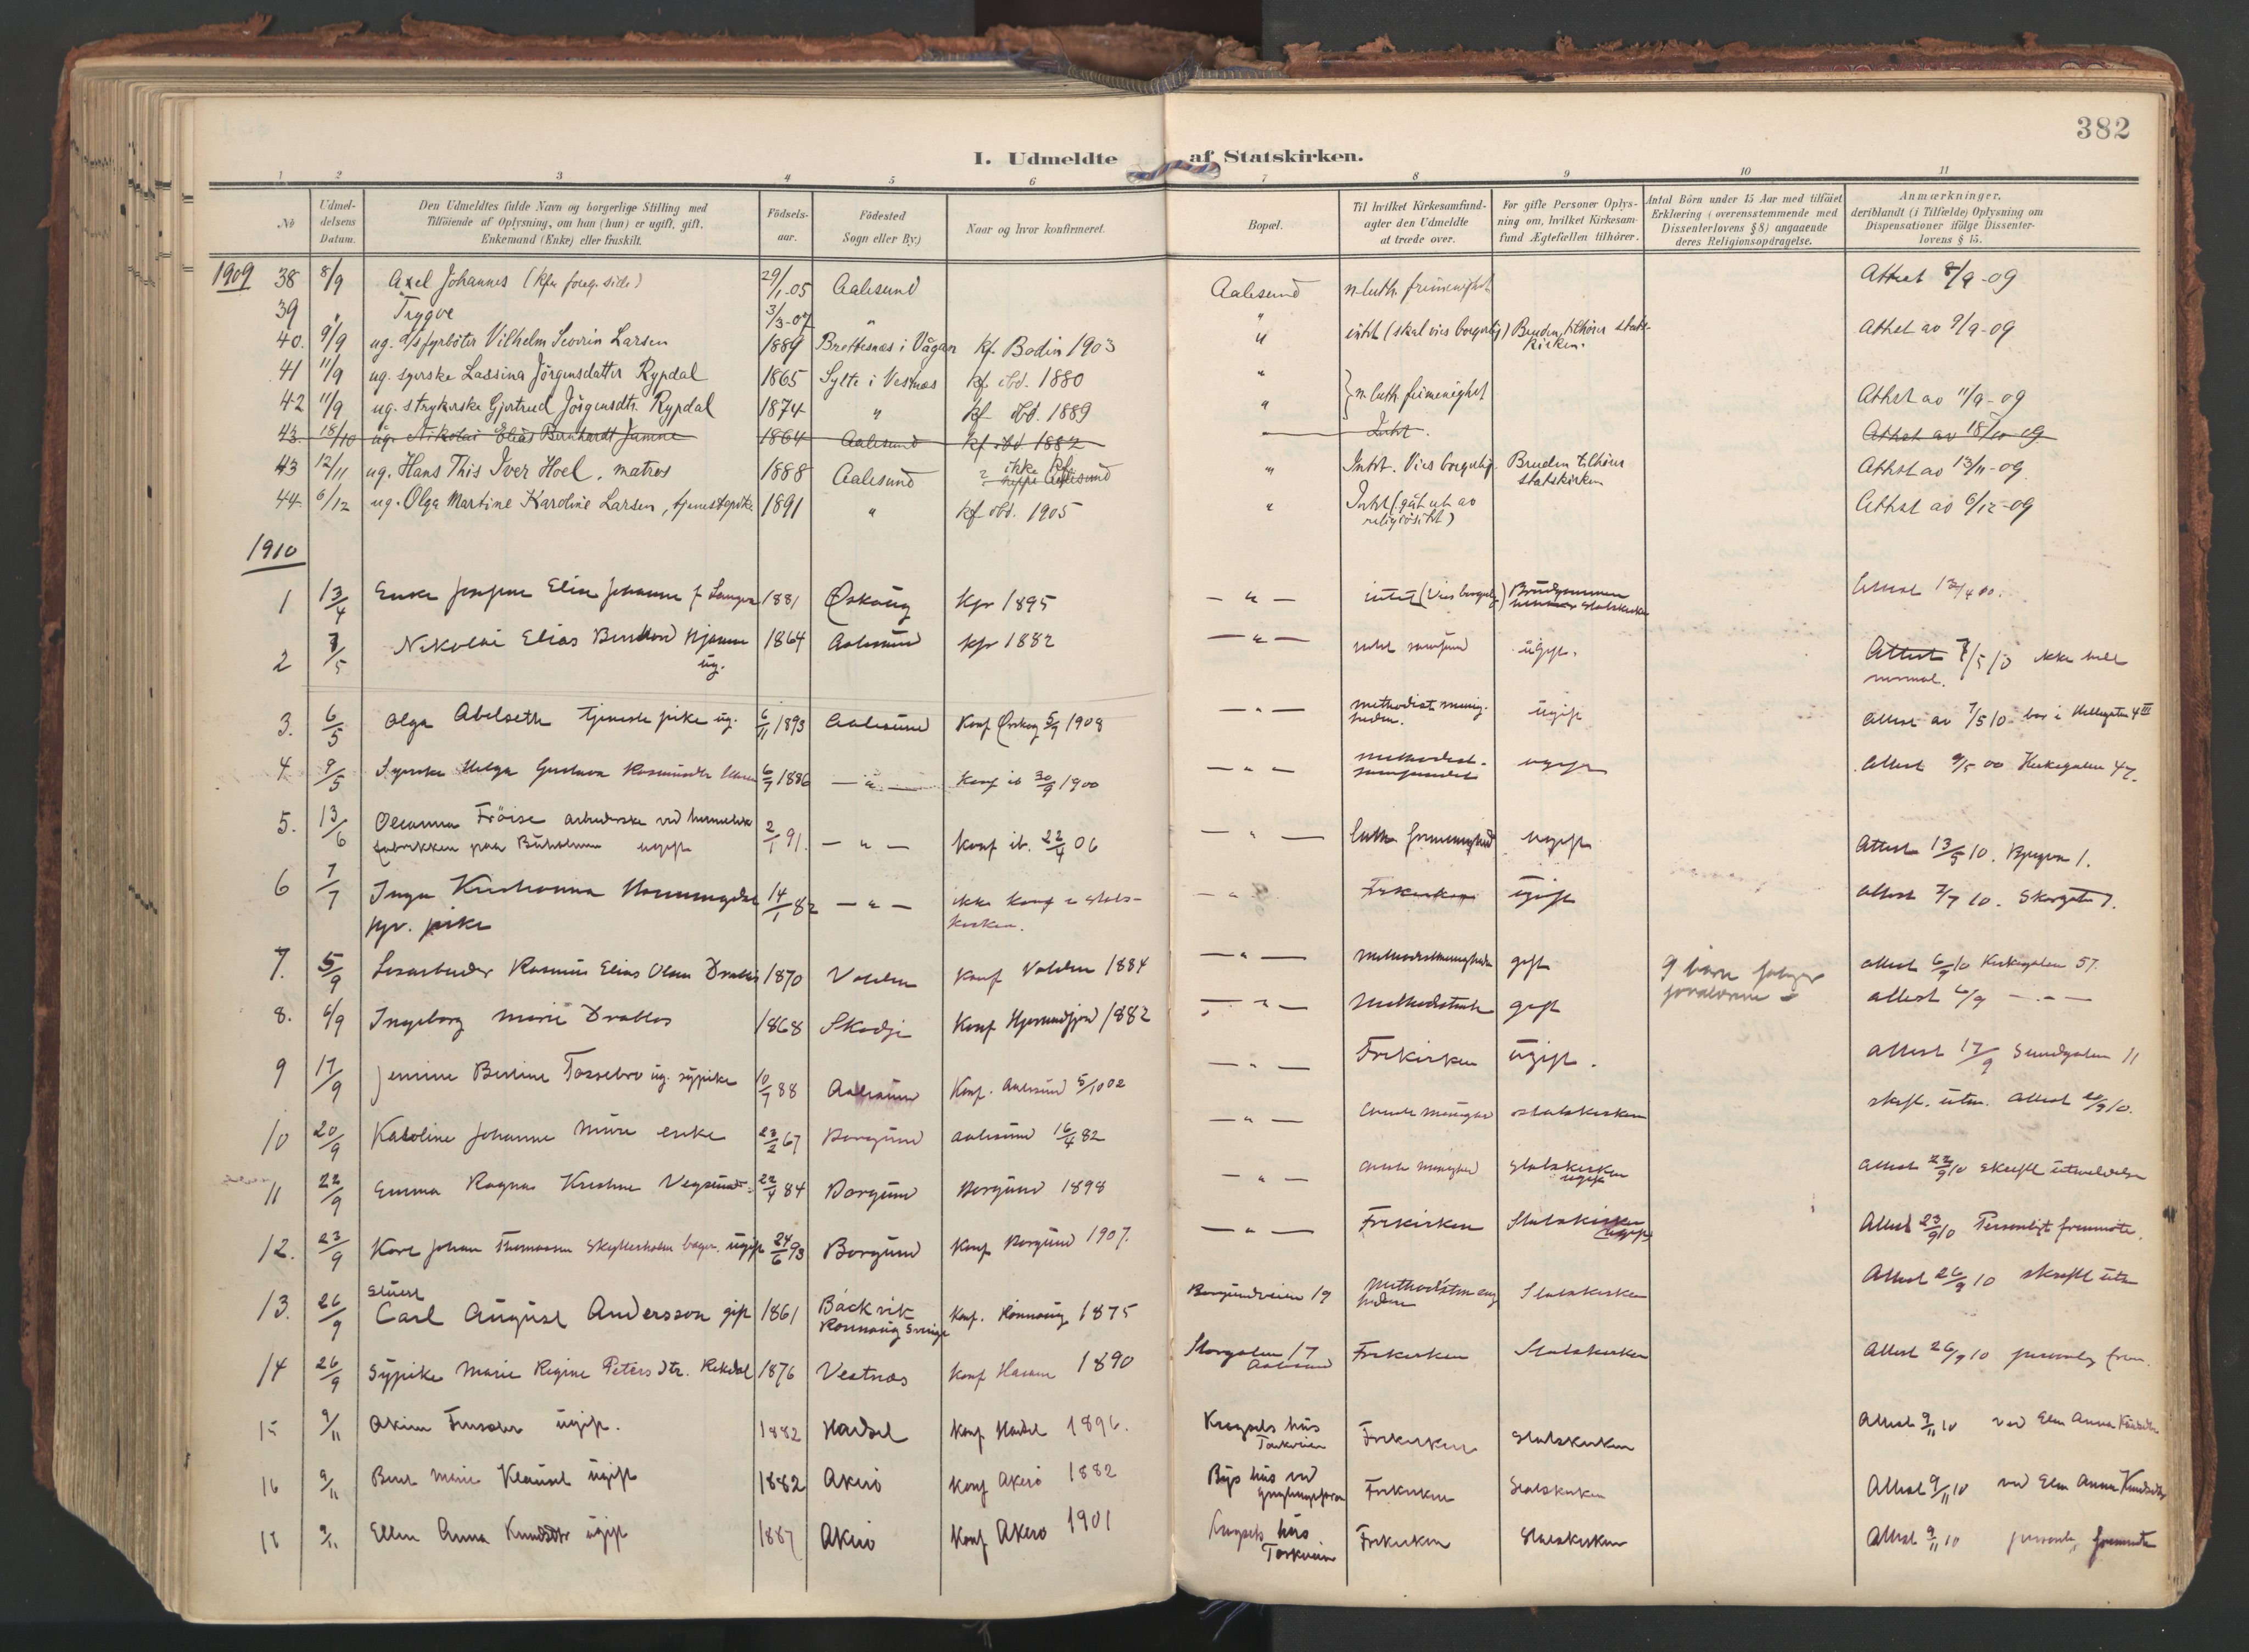 382
I. Udmeldte af Statskirken.
1 2 3 4 5 6 7 8 9 10 11
No
Udmeldelsens Datum.
Den Udmeldtes fulde Navn og borgerlige Stilling med Tilföiende af Oplysning, om han (hun) er ugift, gift, Enkemand (Enke) eller fraskilt.
Födselsaar.
Födested Sogn eller By.)
Naar og hvor konfirmeret.
Bopæl.
Til hvilket Kirkesamfund agter den Udmeldte at træde over.
For gifte Personer Oplysning om, hvilket Kirkesamfund Ægtefællen tilhörer.
Antal Börn under 15 Aar med tilföiet Erklæring (overensstemmende med Dissenterlovens § 8) angaaende deres Religionsopdragelse.
Anmærkninger, deriblandt (i Tilfælde) Oplysning om Dispensationer ifölge Dissenterlovens § 15.
1909 38 8/9 Axel Johannes (kfr. foreg. side) 29/1-05 Aalesund Aalesund n. luth. frimenighet Attest 8/9-09
39 " Trygve 3/3-07 " "
40. 9/9 ug. d/s fyrböter Vilhelm Severin Larsen 1889 Brettesnæs i Vågan kf. Bodin 1903 " intet (skal vies borgerlig) Bruden tilhörer statskirken. Attest av 9/9-09
41 11/9 ug. syerske Lassina Jörgensdatter Rypdal 1865 Sylte i Vestnæs kf. ibd. 1880 " } n. luth. frimenighet
42 11/9 ug. strykerske Gjertrud Jörgensdtr. Rypdal 1874 " kf. ibd. 1889 " Attest av 11/9-09
43. 18/10 ug. Nikolai Elias Bernhardt Jamne 1864 Aalesund kf. ibd. 1882 Intet. Attest av 18/10-09
43 12/11 ug. Hans This Iver Hoel, matros 1888 Aalesund ikke kf. Aalesund " Intet. Vies borgerlig. Bruden tilhörer statskirken Attest av 13/11-09
44. 6/12 ug. Olga Martine Karoline Larsen, tjenestepike 1891 " kf. ibd. 1905 " Intet (gåt ut av religiösitet) Attest av 6/12-09
1910
1 13/4 Enke Elise Johanne f. 1881 Ørskoug kfr 1895 — " — intet (Vies borgerlig) Brudgommen Statskirken Attest
2 7/5 Nikolai Elias ug. 1864 Aalesund kfr 1882 — " — intet samfund ugift. Attest 7/5 10 ikke helt normal.
3. 6/5 Olga Abelseth tjenestepike ug. 6/11 1893 Aalesund Konf Ørskog 5/9 1908 — " — methodistmenigheden. ugift Attest av 7/5 10 bor i 4 III
4 9/5 Syerske Helga Gustava 6/7 1886 — " — Konf ib 30/9 1900 — " — methodistsamfundet ugift Attest 9/5 Kirkegaten 47.
5. 13/6 Oleanna Fröise arbeiderske ved hermetikfabrikken paa Buholmen ugift 2/1 91. — " — Konf ib. 22/4 06 — " — luth. frimenighed ugift Attest 13/5 10. 1.
6 7/7 Inga Kristianna pike 14/1 82 — " — ikke konf i statskirken. — " — Frikirken ugift Attest 7/7 10. 7.
7. 5/9 Lösarbeider Rasmus Elias Olsen Drabløs 1870 Volden Konf Volden 1884 — " — Methodistmenigheden gift 9 börn følger forældrene Attest 6/9 10 Kirkegaten 57.
8. 6/9 Ingeborg Marie Drabløs 1868 Skodje Konf Hjørundfjord 1882 — " — Methodistmh gift Attest 6/9 — " —
9 17/9 Jenine Berline Tossebro ug. sypike 10/7 88 Aalesund Konf. Aalesund 5/10 02 — " — Frikirken ugift. Attest 17/9 Sundgaten 11
10 20/9 Karoline Johanne Mure enke 23/2 67 Borgund Aalesund 16/4 82 — " — statskirken skrftl. utm. Attest 20/9 10.
11 22/9 Emma Ragna Kristine Vegsund 22/4 84 Borgund Borgund 1898 — " — Statskirken ugift Attest 22/9 10 skriftl utmeldelse
12. 23/9 Karl Johan Thomassen bager. ugift 24/6 93 Borgund Konf Borgund 1907. — " — Frikirken Statskirken (ugift) Attest 23/9 10 Personligt fremmöte.
13. 26/9 Stuert Carl August Andersson gift 1861 Bäckvik Rönnäng Sverige Konf. Rönnäng 1875 Borgundveien 19 Methodistmenigheden Statskirken Attest 26/9 10 skriftl utm
14 26/9 Sypike Marie Regine Petersdtr. Rekdal 1876 Vestnæs Konf 1890 Storgaten 17 Aalesund Frikirken Statskirken Attest 26/9 10 personlig frem.
15 9/11 ugift. 1882 Hadsel Konf Hadsel 1896. hus Frikirken Statskirken Attest 9/11 10 ved Elen Anna Knudsdtr
16 9/11 Marie ugift 1882 Akerö Konf Akerö 1882 hus ved Frikirken Statskirken Attest 9/11 10 ved Elen Anna Knudsdtr
18 9/11 Ellen Anna Knudsdtr ugift 1887 Akerö Konf Akerö 1901 hus Frikirken Statskirken Attest 9/11 10 personlig fremmöte